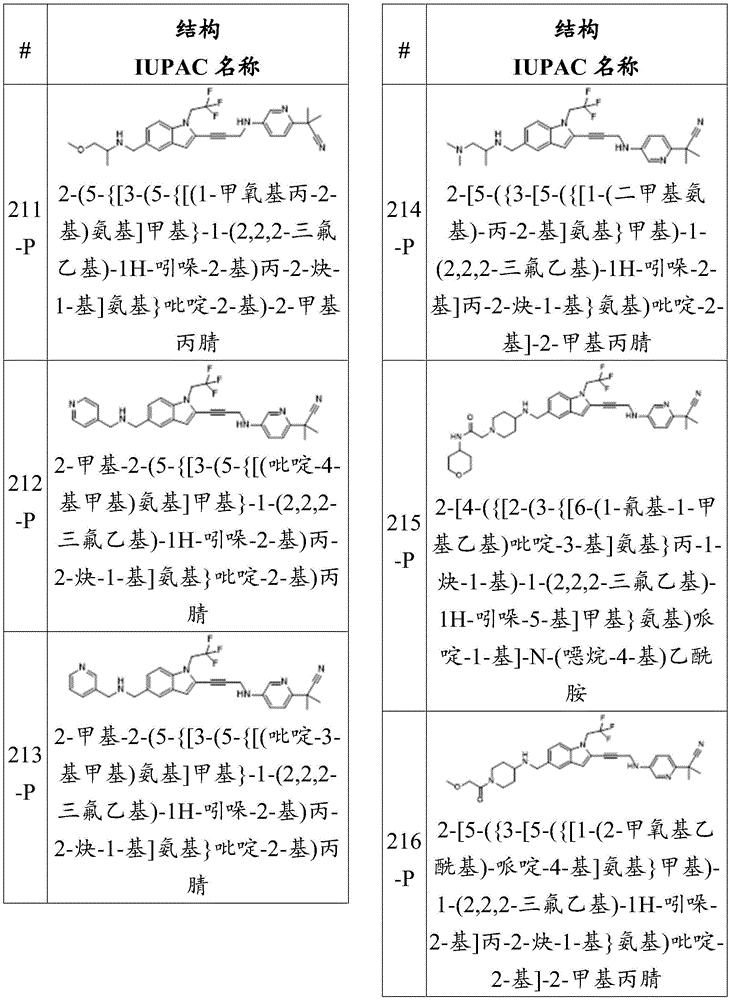 #
结构
IUPAC 名称
211
-P
2-(5-{[3-(5-{[(1-甲氧基丙-2-
基)氨基]甲基}-1-(2,2,2-三氟
乙基)-1H-吲哚-2-基)丙-2-炔-
1-基]氨基}吡啶-2-基)-2-甲基
丙腈
212
-P
2-甲基-2-(5-{[3-(5-{[(吡啶-4-
基甲基)氨基]甲基}-1-(2,2,2-
三氟乙基)-1H-吲哚-2-基)丙-
2-炔-1-基]氨基}吡啶-2-基)丙
腈
213
-P
2-甲基-2-(5-{[3-(5-{[(吡啶-3-
基甲基)氨基]甲基}-1-(2,2,2-
三氟乙基)-1H-吲哚-2-基)丙-
2-炔-1-基]氨基}吡啶-2-基)丙
腈
#
结构
IUPAC 名称
214
-P
2-[5-({3-[5-({[1-(二甲基氨
基)-丙-2-基]氨基}甲基)-1-
(2,2,2-三氟乙基)-1H-吲哚-2-
基]丙-2-炔-1-基}氨基)吡啶-2-
基]-2-甲基丙腈
215
-P
2-[4-({[2-(3-{[6-(1-氰基-1-甲
基乙基)吡啶-3-基]氨基}丙-1-
炔-1-基)-1-(2,2,2-三氟乙基)-
1H-吲哚-5-基]甲基}氨基)哌
啶-1-基]-N-(噁烷-4-基)乙酰
胺
216
-P
2-[5-({3-[5-({[1-(2-甲氧基乙
酰基)-哌啶-4-基]氨基}甲基)-
1-(2,2,2-三氟乙基)-1H-吲哚-
2-基]丙-2-炔-1-基}氨基)吡啶-
2-基]-2-甲基丙腈